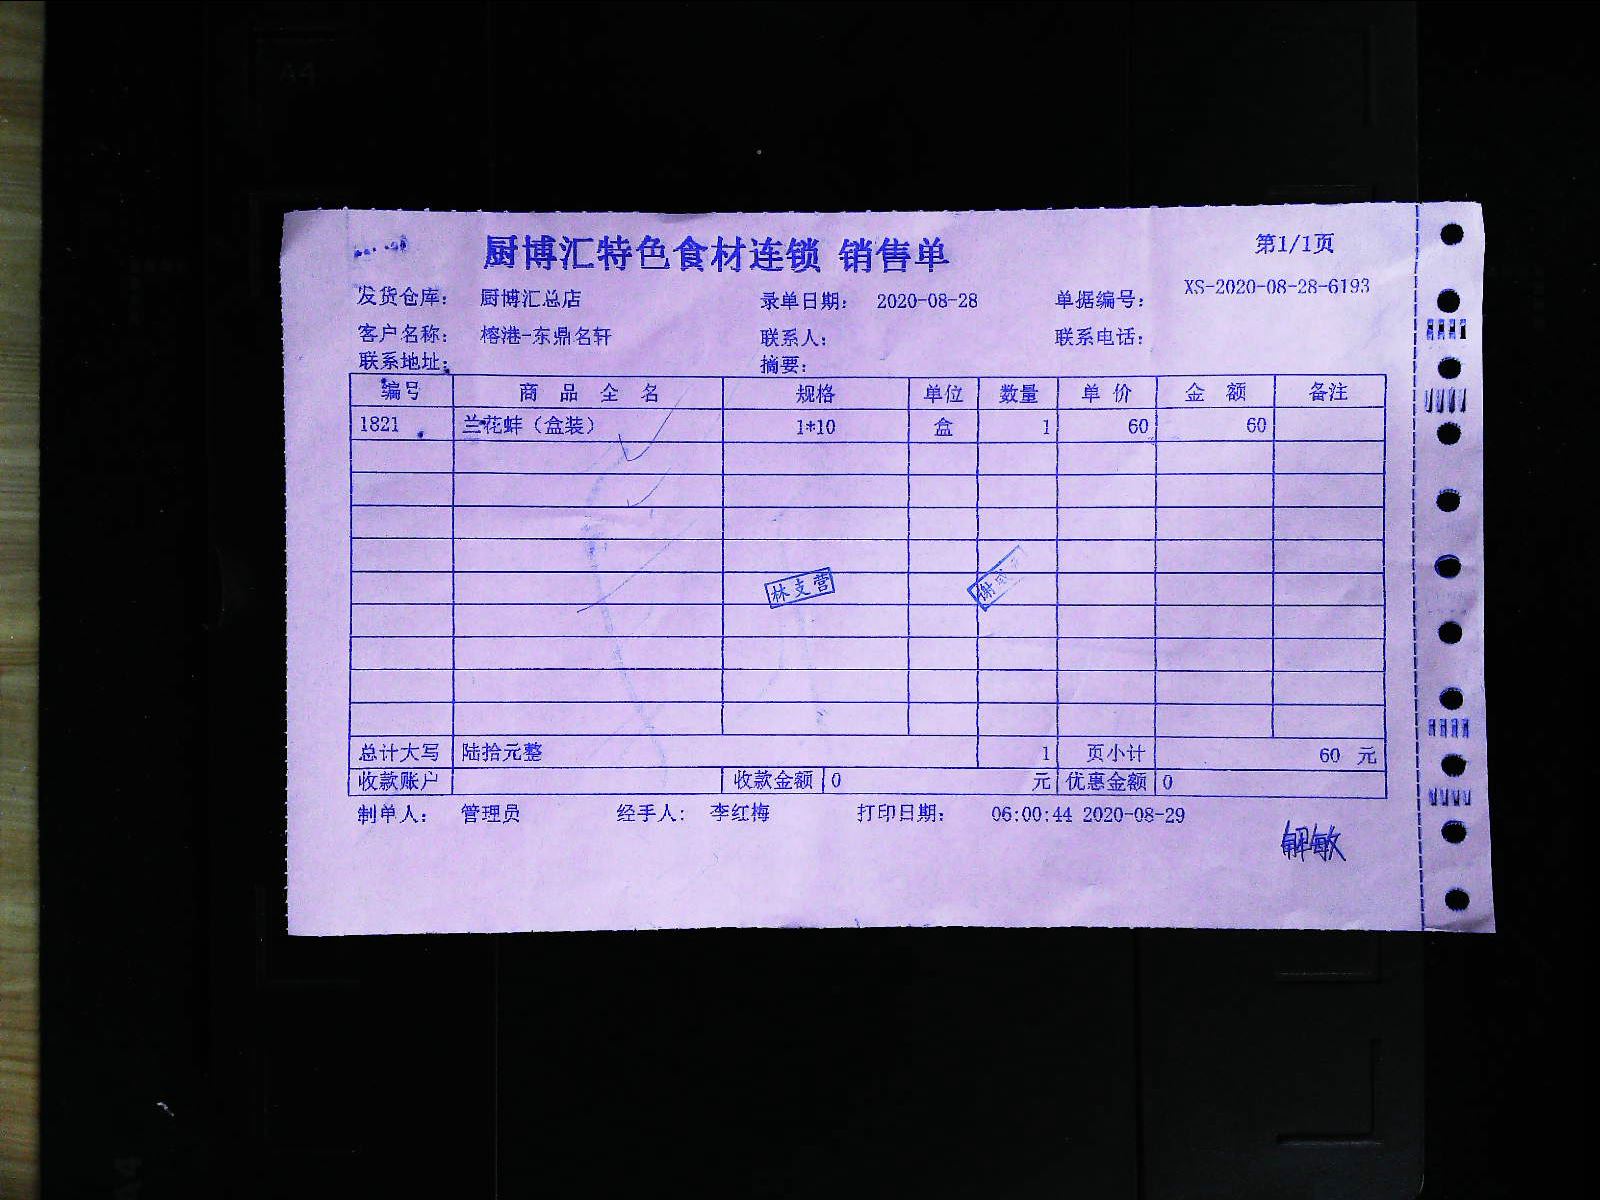 厨博汇特色食材连锁 销售单 第1/1页
发货仓库： 厨博汇总店 录单日期： 2020-08-28 单据编号： XS-2020-08-28-6193
客户名称： 榕港-东鼎名轩 联系人： 联系电话：
联系地址： 摘要：
编号 商品全名 规格 单位 数量 单价 金额 备注
1821 兰花蚌（盒装） 1*10 盒 1 60 60
林支营
谢
总计大写 陆拾元整 1 页小计 60 元
收款账户 收款金额 0 元 优惠金额 0
制单人： 管理员 经手人： 李红梅 打印日期： 06:00:44 2020-08-29
解敏
A4